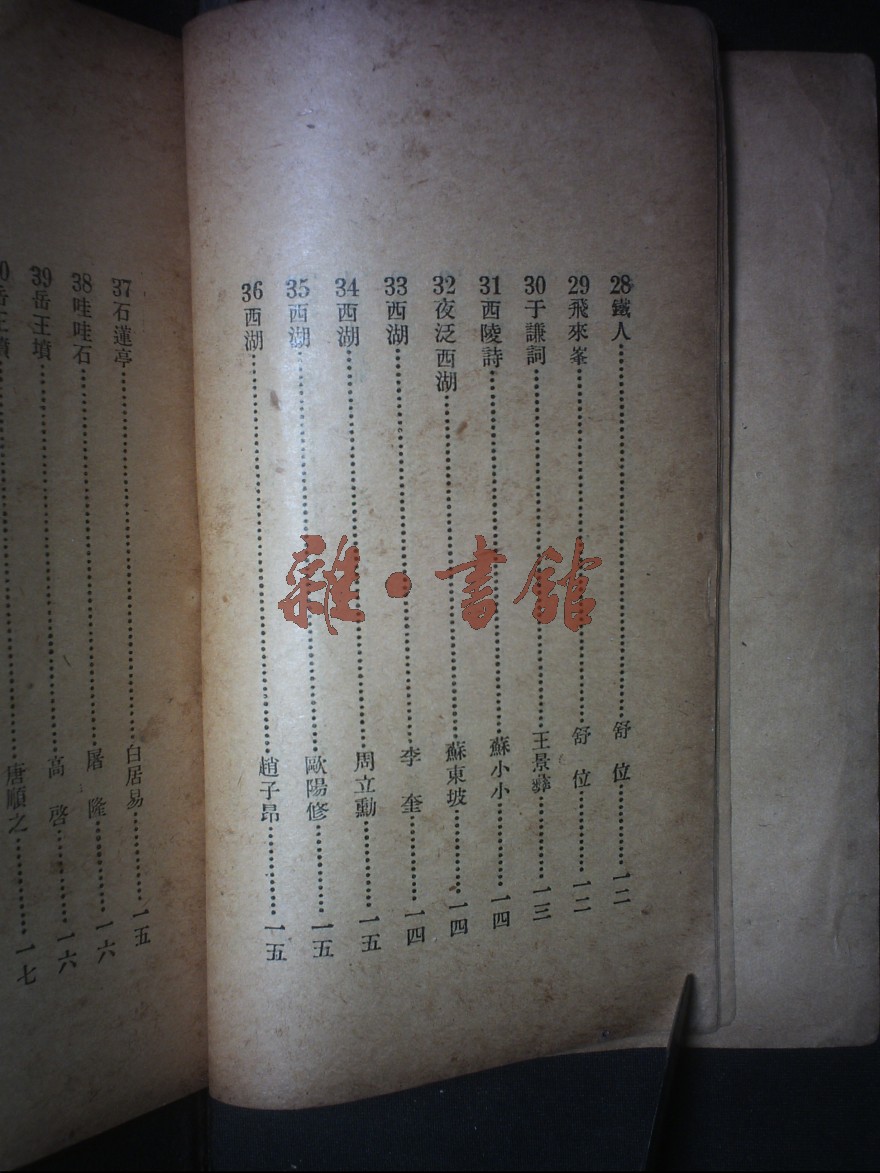 28鐵人……舒位……一二
29飛來峯……舒位……一二
30于謙詞……王景彝……一三
31西陵詩……蘇小小……一四
32夜泛西湖……蘇東坡……一四
33西湖……李奎……一四
34西湖……周立勳……一五
35西湖……歐陽修……一五
36西湖……趙子昂……一五
37石蓮亭……白居易……一五
38哇哇石……屠隆……一六
39岳王墳……高啓……一六
0岳王墳……唐順之……一七
雜·書館